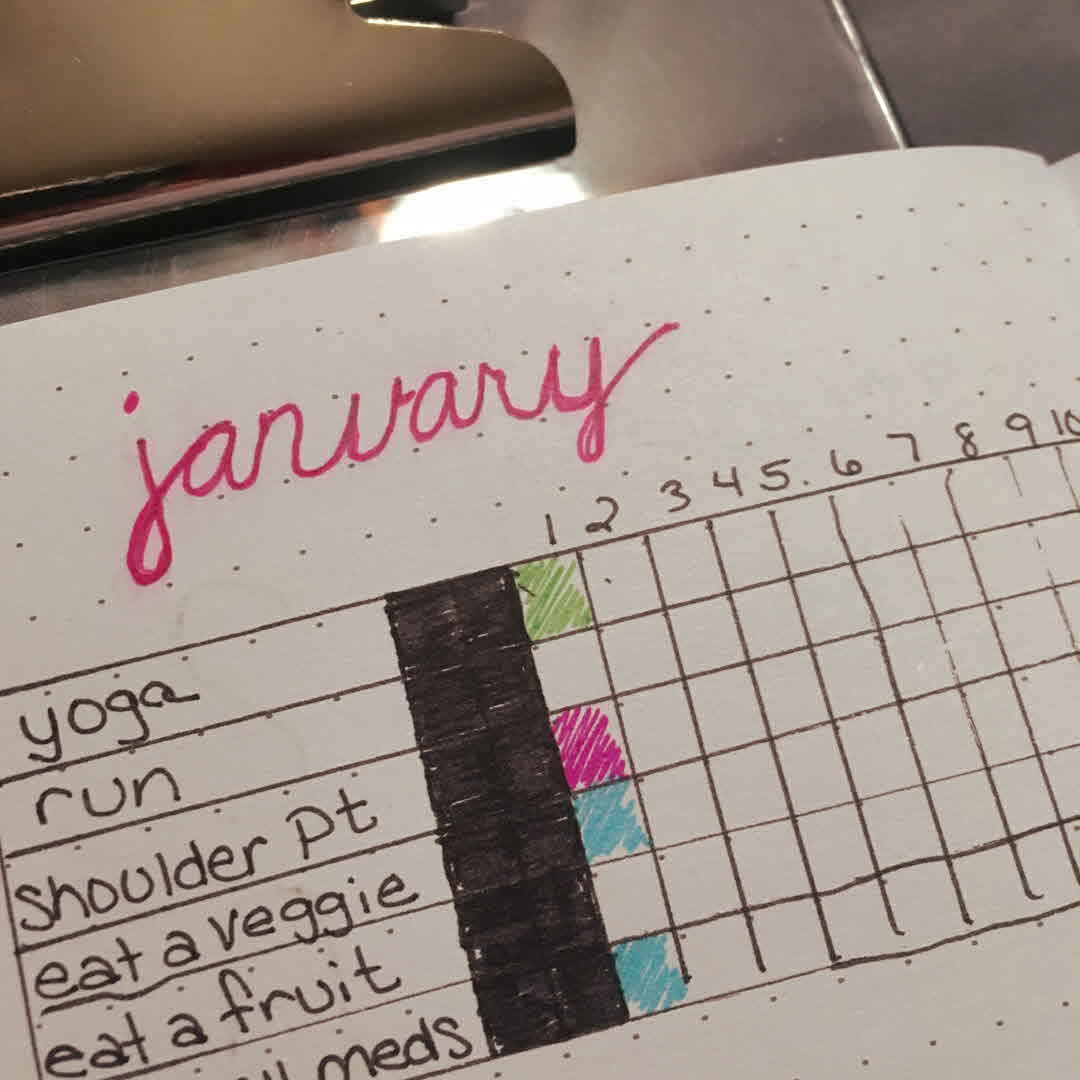 january
1 2 3 4 5. 6 7 8 9 10
yoga
run
shoulder pt
eat a veggie
eat a fruit
meds